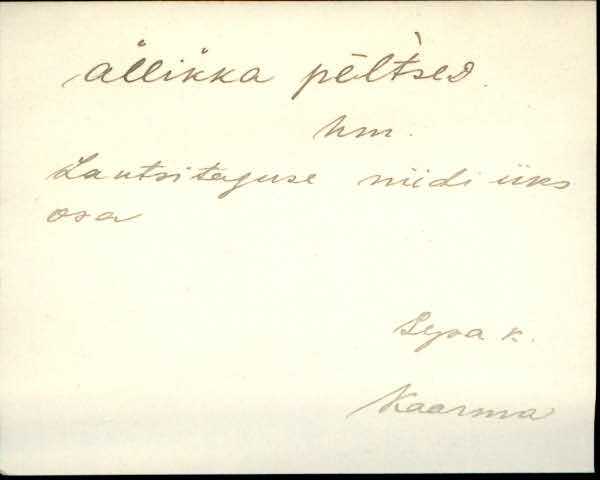 ällikka pēlt̀sed.
hm.
Lautsitaguse niidi üks
osa
Sepa k.
Kaarma